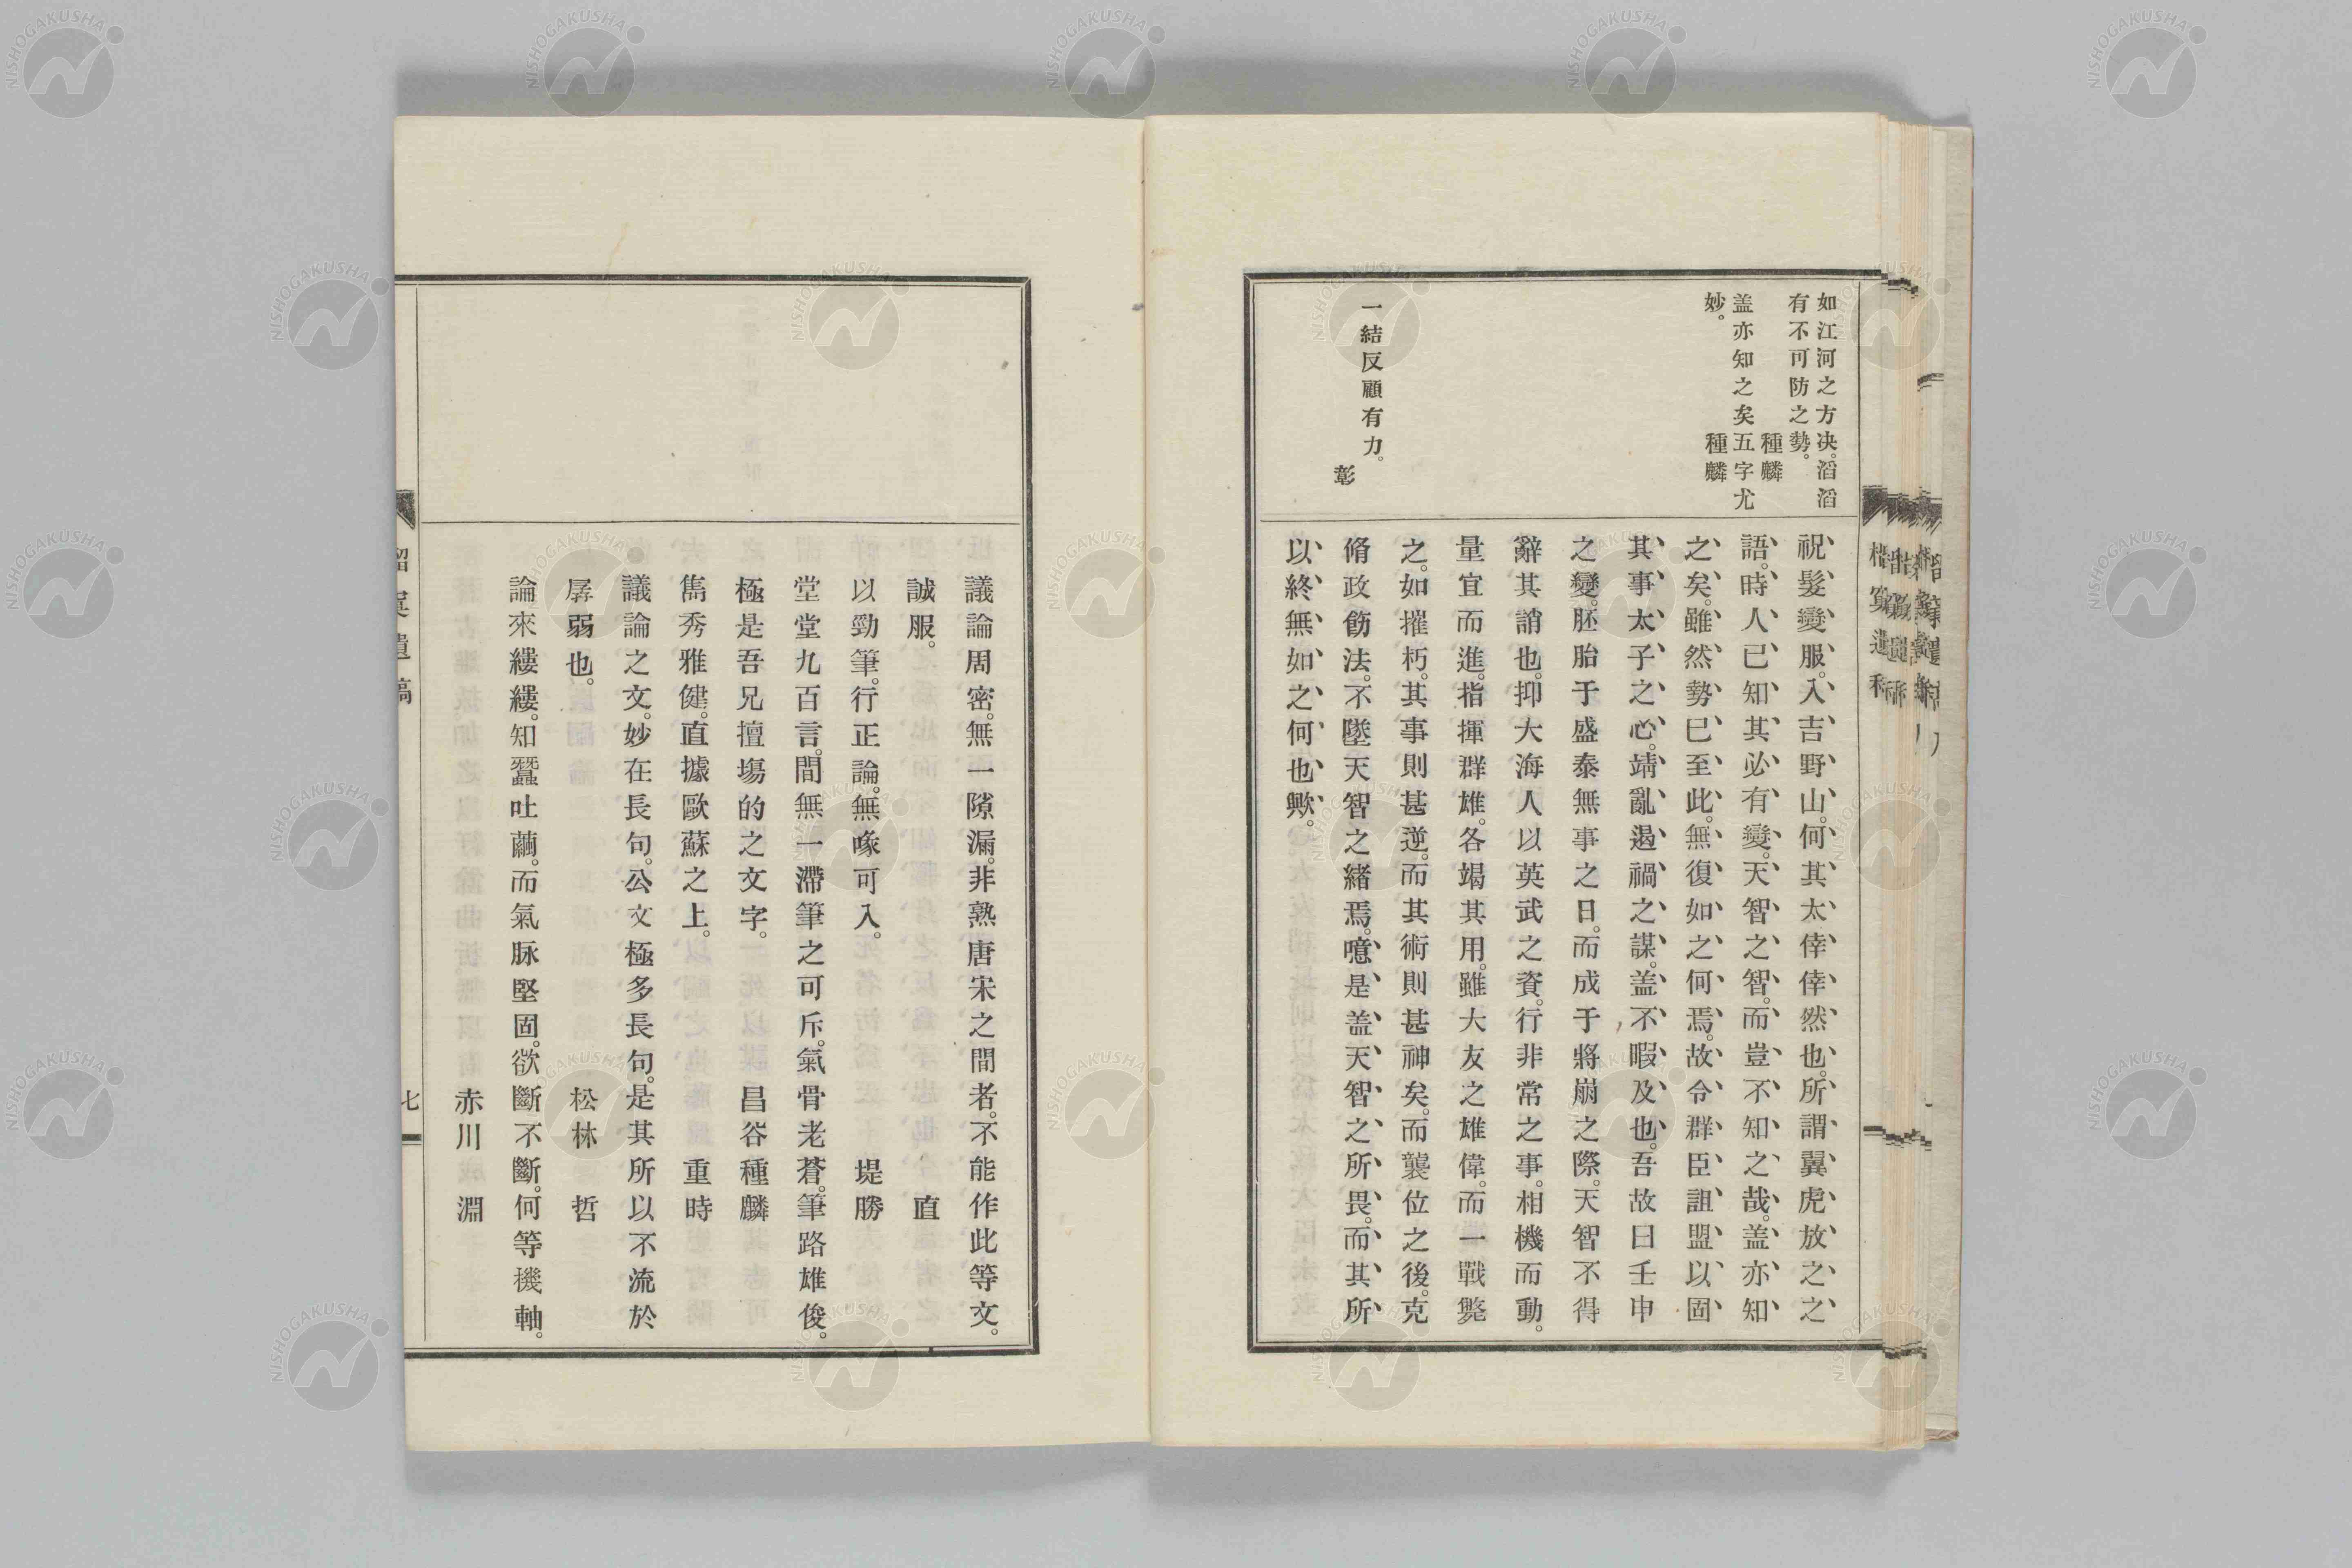 如江河之方决。滔滔
有不可防之勢。
種麟
盖亦知之矣五字尤
妙。
種麟
一結反顧有力。
彰
祝髮變服。入吉野山。何其太倖倖然也。所謂翼虎放之之
語。時人已知其必有變。天智之智。而豈不知之哉。盖亦知
之矣。雖然勢已至此。無復如之何焉。故令群臣詛盟以固
其事太子之心。靖亂遏禍之謀。盖不暇及也。吾故曰壬申
之變。胚胎于盛泰無事之日。而成于將崩之際。天智不得
辭其誚也。抑大海人以英武之資。行非常之事。相機而動。
量宜而進。指揮群雄。各竭其用。雖大友之雄偉。而一戰斃
之。如摧朽。其事則甚逆。而其術則甚神矣。而襲位之後。克
脩政飭法。不墜天智之緒焉。噫是盖天智之所畏。而其所
以終無如之何也歟。
議論周密。無一隙漏。非熟唐宋之間者。不能作此等文。
誠服。 直
以勁筆。行正論。無喙可入。 堤勝
堂堂九百言。間無一滯筆之可斥。氣骨老蒼。筆路雄俊。
極是吾兄擅塲的之文字。 昌谷種麟
雋秀雅健。直據歐蘇之上。 重時
議論之文。妙在長句。公文極多長句。是其所以不流於
孱弱也。 松林哲
論來縷縷。知蠶吐繭。而氣脉堅固。欲斷不斷。何等機軸。
赤川淵
遺稿
七